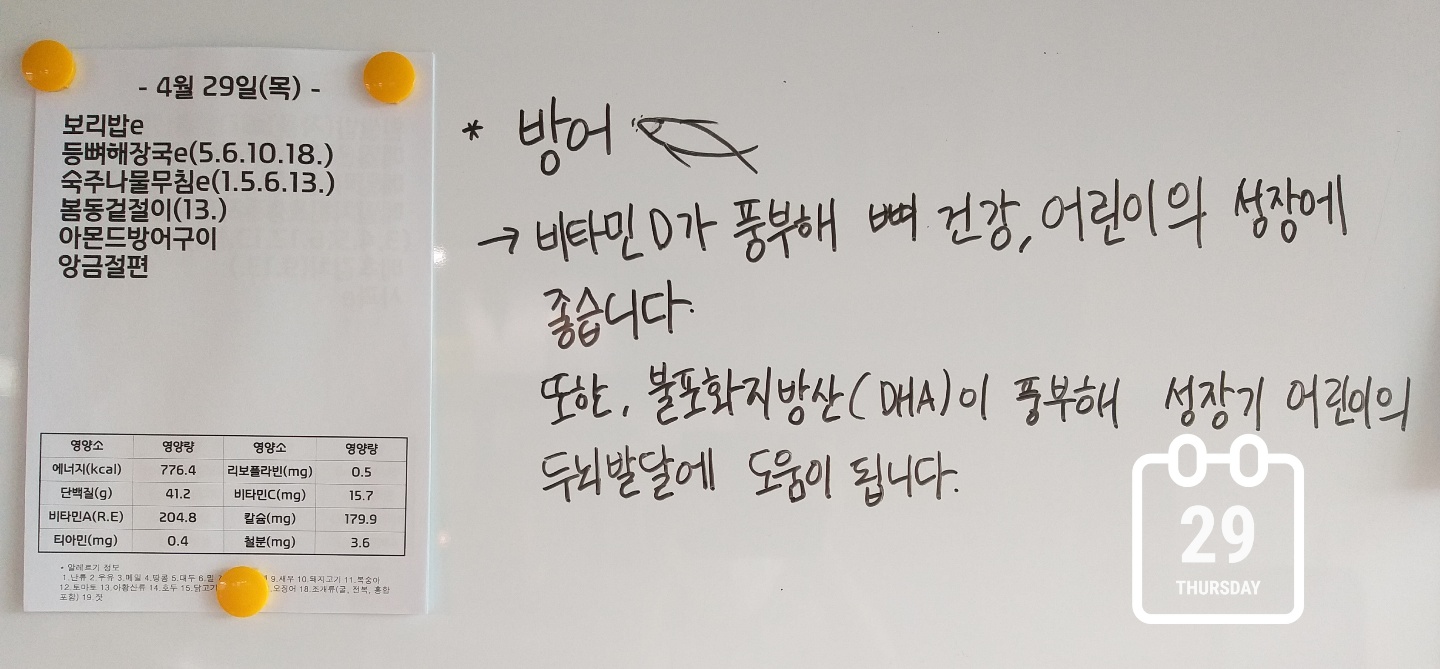 - 4월 29일(목) -
보리밥e
등뼈해장국e(5.6.10.18.)
숙주나물무침e(1.5.6.13.)
봄동겉절이(13.)
아몬드방어구이
앙금절편
영양소 영양량 영양소 영양량
에너지(kcal) 776.4 리보플라빈(mg) 0.5
단백질(g) 41.2 비타민C(mg) 15.7
비타민A(R.E) 204.8 칼슘(mg) 179.9
티아민(mg) 0.4 철분(mg) 3.6
* 알레르기 정보
1.난류 2.우유 3.메밀 4.땅콩 5.대두 6.밀 9.새우 10.돼지고기 11.복숭아
12.토마토 13.아황산류 14.호두 15.닭고기 오징어 18.조개류(굴, 전복, 홍합
포함) 19.잣
* 방어
→ 비타민D가 풍부해 뼈 건강, 어린이의 성장에
좋습니다.
또한, 불포화지방산(DHA)이 풍부해 성장기 어린이의
두뇌발달에 도움이 됩니다.
29
THURSDAY